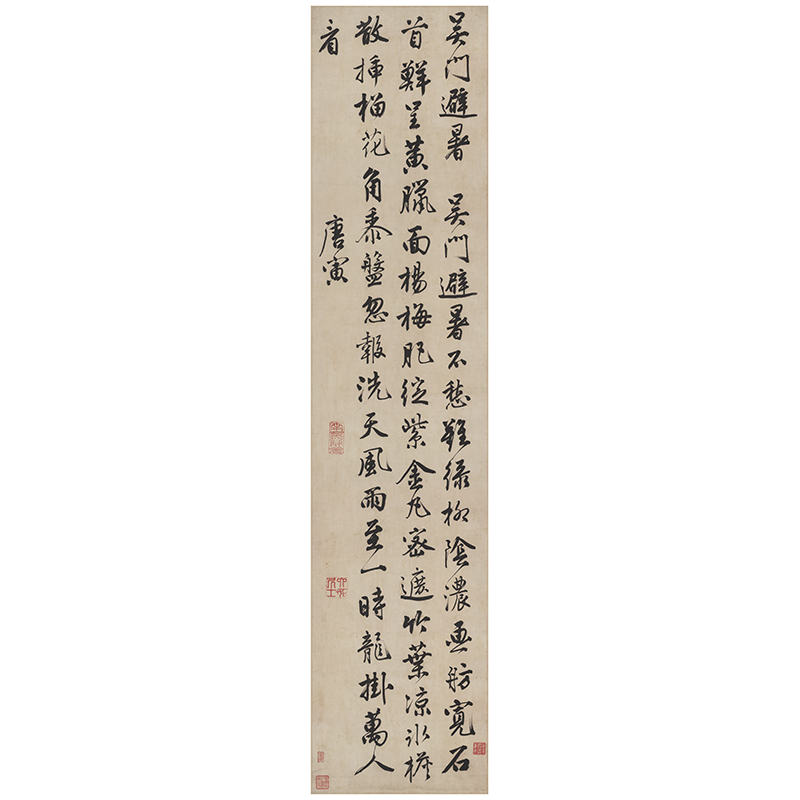 吴門避暑 吴門避暑不愁難綠柳陰濃画舫寬石
首鮮呈黃臘面楊梅肥綻紫金丸密遮竹葉凉冰檨
散揷榴花角黍盤忽報洗天風雨至一時龍掛萬人
看
唐寅